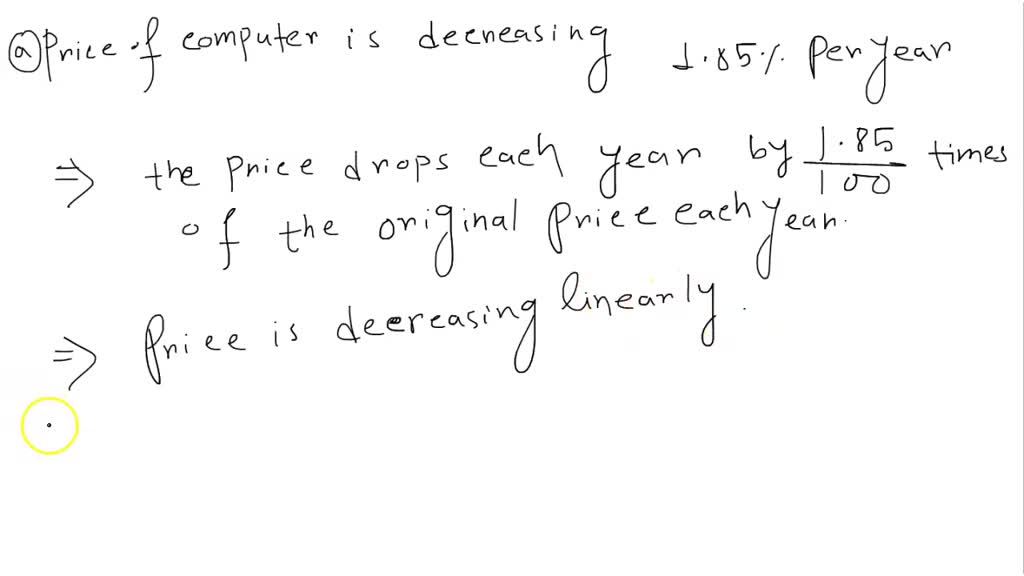 ⓐ Price of computer is decreasing 1.85% Per year
⇒ the price drops each year by 1.85/100 times
of the original price each year.
⇒ Price is decreasing linearly.